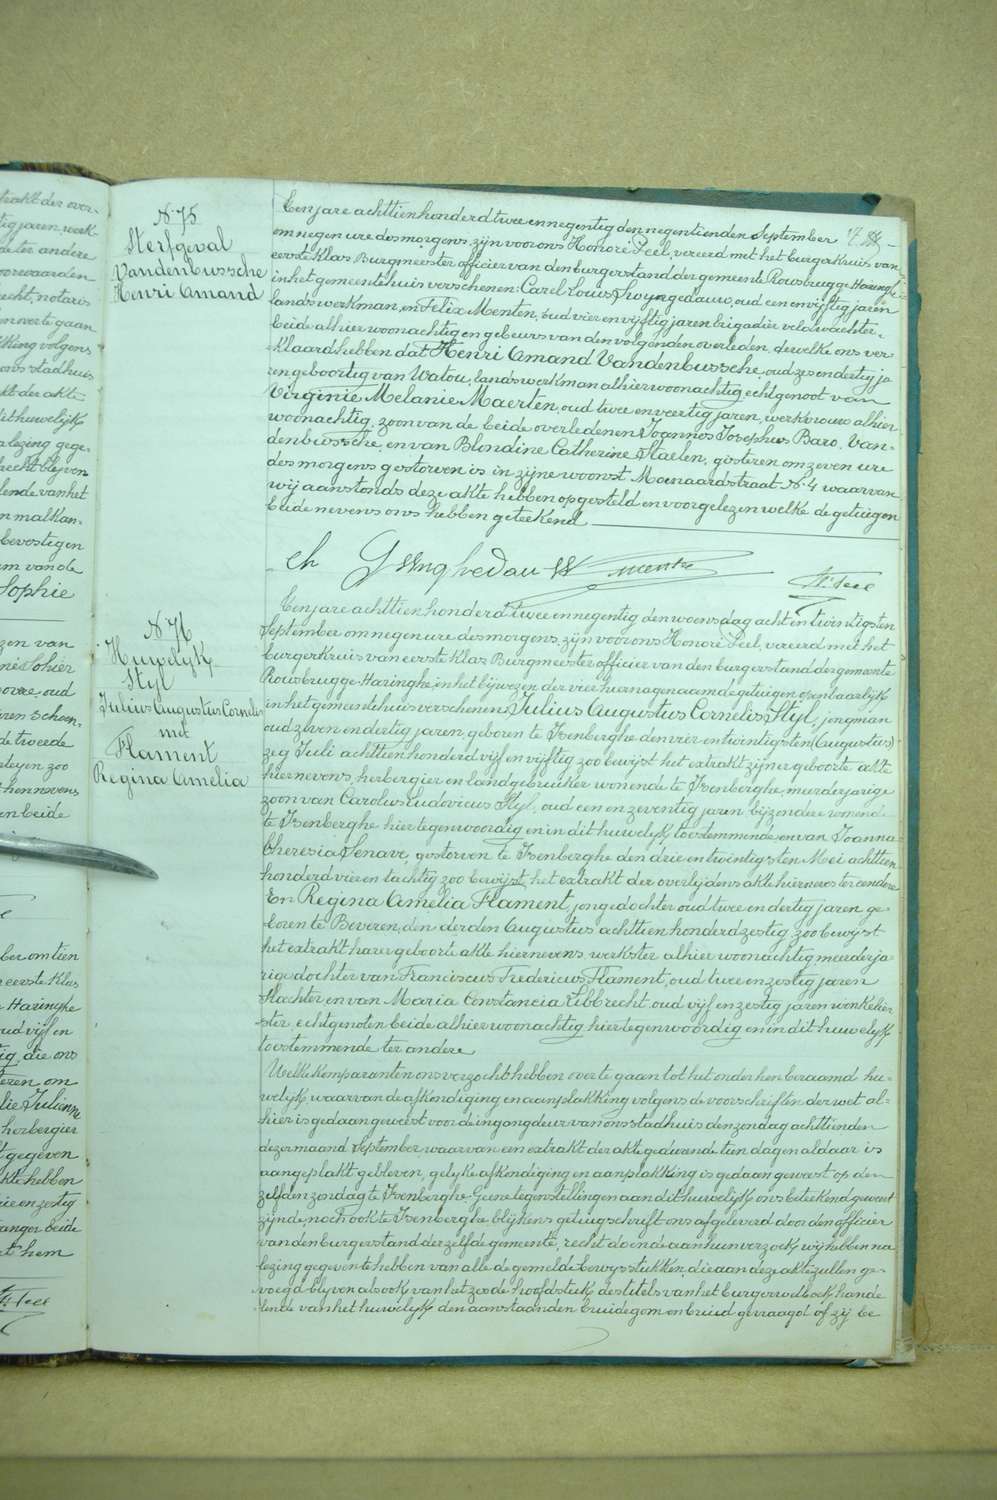 trakt der over-
tig jaren, werk-
de ter andere
voorwaarden
recht, notaris
en over te gaan
king volgens
ons stadhuis
kt der akte
dit huwelijk
a lezing gege-
hecht blijven
lende van het
n malkan-
bevestigen
am van de
Sophie
zen van
ne Sohier
oud
de tweede
zoo
hiernevens
en beide
ber om tien
eerste Klas
Haringhe
oud vijf en
tig, die ons
teren om
lie Julienne
herbergier
t gegeven
kte hebben
rie en zestig
tanger beide
rt hem
H. Feel
N 75
Sterfgeval
Vandenbussche
Henri Amand
N 76
Huwelijk
Styl
Julius Augustus Cornelis
met
Flament
Regina Amelia
Een jare achttien honderd twee en negentig den negentienden September
om negen ure des morgens, zijn voor ons Honoré Feel, vereerd met het burgerkruis van
eerste klas, Burgmeester officier van den burgerstand der gemeente Rousbrugge-Haringhe
in het gemeentehuis verschenen: Carel Louis Swyngedauw, oud een en vijftig jaren
landswerkman, en Felix Menten, oud vier en vijftig jaren brigadier veldwachter,
beide alhier woonachtig en gebeurs van den volgenden overleden, dewelke ons ver
klaard hebben dat Henri Amand Vandenbussche, oud zes en dertig ja
ren geboortig van Watou, landswerkman alhier woonachtig echtgenoot van
Virginie Melanie Maerten, oud twee en veertig jaren, werkvrouw alhier
woonachtig, zoon van de beide overledenen Joannes Josephus Baro. Van-
denbussche, en van Blondine Catherine Staelen, gisteren om zeven ure
des morgens gestorven is in zijne woonst Moenaardstraat N. 4 waarvan
wij aanstonds deze akte hebben opgesteld en voorgelezen welke de getuigen
beide nevens ons hebben geteekend
Ch Swynghedauw Menten H. Feel
Een jare achttien honderd twee en negentig den woensdag acht en twintigsten
September om negen ure des morgens, zijn voor ons Honoré Feel, vereerd met het
burgerkruis van eerste klas Burgmeester officier van den burgerstand der gemeente
Rousbrugge-Haringhe, in het bijwezen der vier hernagenaamde getuigen openbaarlijk
in het gemeentehuis verschenen Julius Augustus Cornelis Styl, jongman
oud zeven en dertig jaren, geboren te Isenberghe den vier en twintigsten (Augustus)
zeg Juli achttien honderd vijf en vijftig zoo bewijst het extrakt zijner geboorte akte
hiernevens, herbergier en landgebruiker wonende te Isenberghe, meerderjarige
zoon van Carolus Ludovicus Styl, oud een en zeventig jaren, bijzondere wonende
te Isenberghe hier tegenwoordig en in dit huwelijk toestemmende, en van Joanna
Theresia Senave, gestorven te Isenberghe den drie en twintigsten Mei achttien
honderd vier en tachtig zoo bewijst het extrakt der overlijdens akte hiernevens ter eendere
En Regina Amelia Flament, jonge dochter oud twee en dertig jaren ge-
boren te Beveren, den derden Augustus achttien honderd zestig, zoo bewijst
het extrakt harer geboorte akte hiernevens, werkster alhier woonachtig meerderja-
rige dochter van Franciscus Fredericus Flament, oud twee en zestig jaren
slachter en van Maria Constancia Libbrecht oud vijf en zestig jaren winkelier
ster, echtgenoten beide alhier woonachtig hier tegenwoordig en in dit huwelijk
toestemmende ter andere
Welke komparanten ons verzocht hebben over te gaan tot het onder hen beraamd hu-
welijk waarvan de afkondiging en aanplakking volgens de voorschriften der wet al-
hier is gedaan geweest voor de ingangdeur van ons stadhuis den zondag achttienden
dezer maand September, waarvan een extrakt der akte gedurende tien dagen aldaar is
aangeplakt gebleven, gelijke afkondiging en aanplakking is gedaan geweest op den
zelfden zondag te Isenberghe. Geene tegenstellingen aan dit huwelijk ons beteekend geweest
zijnde, noch ook te Isenberghe, blijkens getuigschrift ons afgeleverd door den officier
van den burgerstand der zelfde gemeente, recht doende aan hun verzoek, wij hebben na
lezing gegeven te hebben van alle de gemelde bewijsstukken, die aan deze akte zullen ge-
voegd blijven alsook van het zesde hoofdstuk des titels van het burgerwetboek hande
lende van het huwelijk den aanstaanden bruidegom en bruid gevraagd of zij be